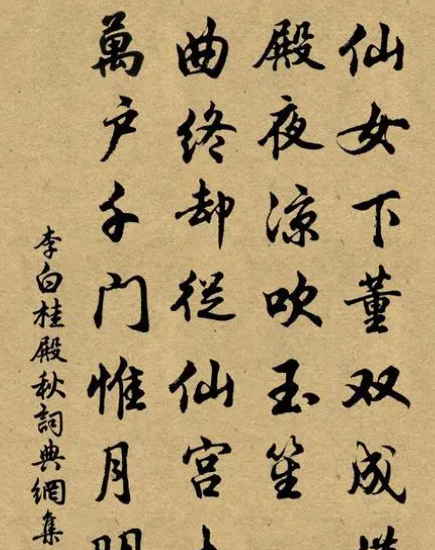 仙女下董双成
殿夜涼吹玉笙
曲终却從仙宫
萬户千门惟月明
李白桂殿秋詞典網集